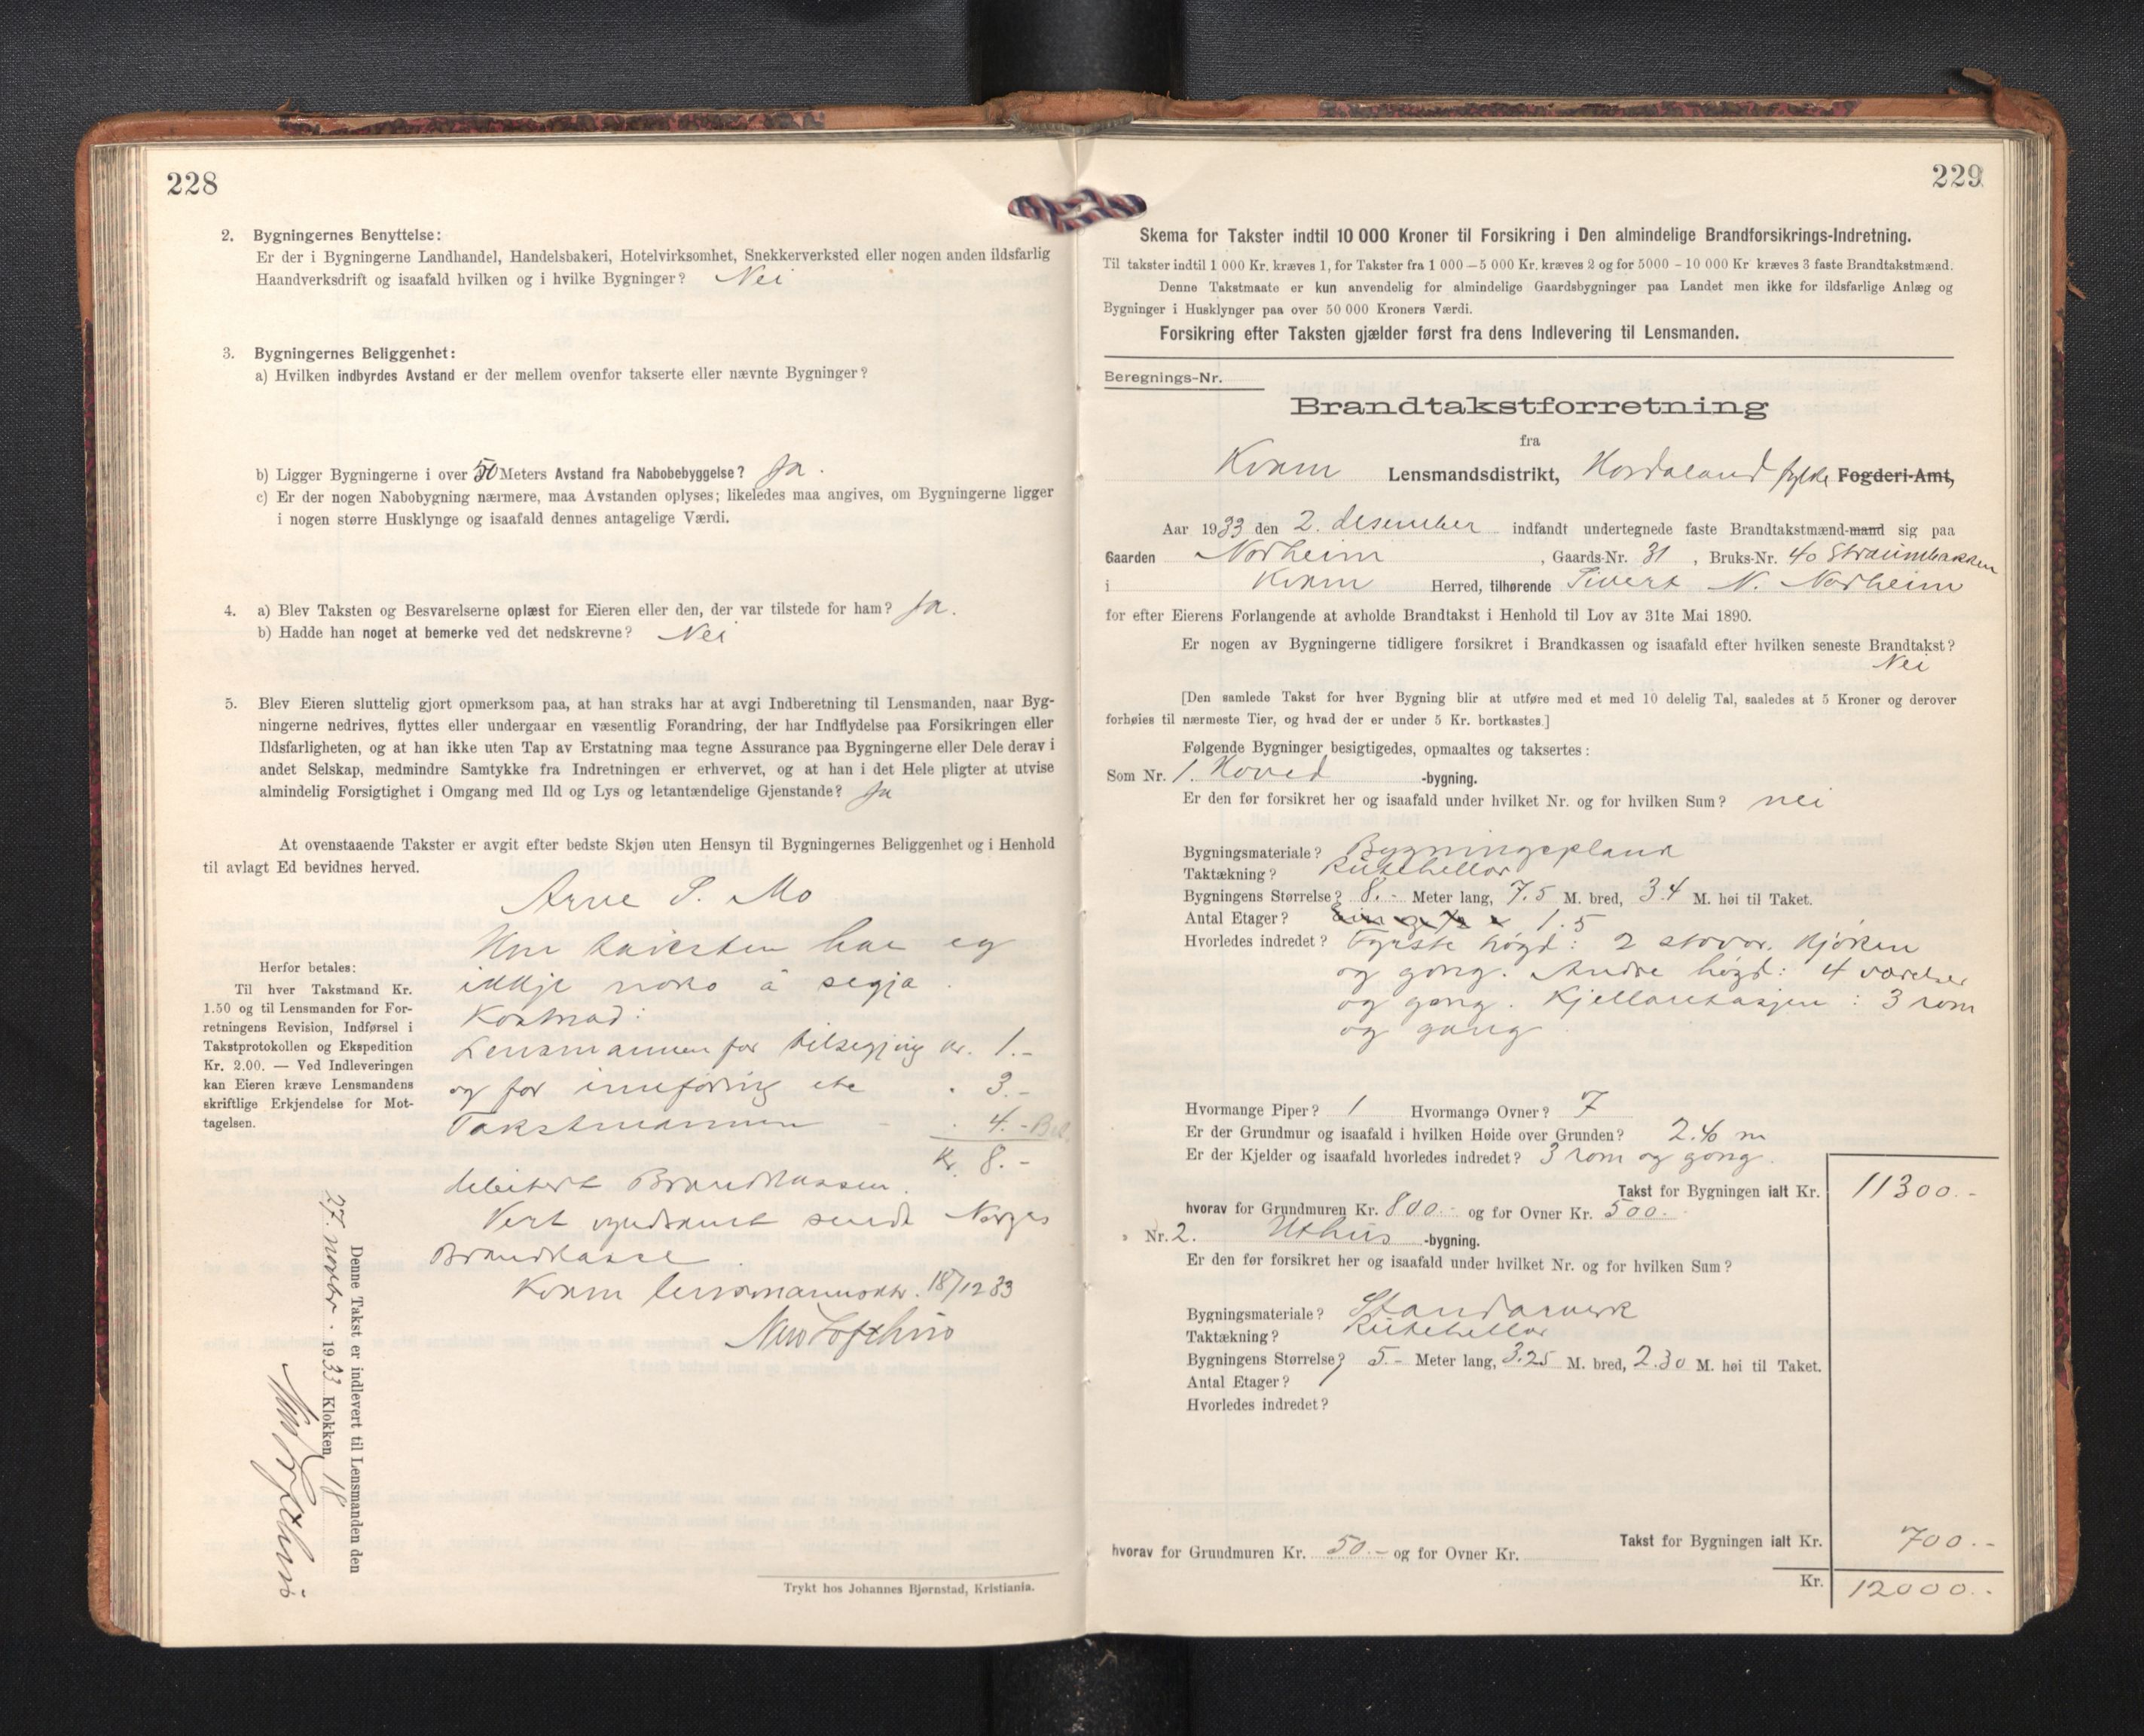 228
2. Bygningernes Benyttelse:
Er der i Bygningerne Landhandel, Handelsbakeri, Hotelvirksomhet, Snekkerverksted eller nogen anden ildsfarlig
Haandverksdrift og isaafald hvilken og i hvilke Bygninger? Nei
3. Bygningernes Beliggenhet:
a) Hvilken indbyrdes Avstand er der mellem ovenfor takserte eller nævnte Bygninger?
b) Ligger Bygningerne i over 50 Meters Avstand fra Nabobebyggelse? Ja.
c) Er der nogen Nabobygning nærmere, maa Avstanden oplyses; likeledes maa angives, om Bygningerne ligger
i nogen større Husklynge og isaafald dennes antagelige Værdi.
4. a) Blev Taksten og Besvarelserne oplæst for Eieren eller den, der var tilstede for ham? Ja.
b) Hadde han noget at bemerke ved det nedskrevne? Nei
5. Blev Eieren sluttelig gjort opmerksom paa, at han straks har at avgi Indberetning til Lensmanden, naar Byg-
ningerne nedrives, flyttes eller undergaar en væsentlig Forandring, der har Indflydelse paa Forsikringen eller
Ildsfarligheten, og at han ikke uten Tap av Erstatning maa tegne Assurance paa Bygningerne eller Dele derav i
andet Selskap, medmindre Samtykke fra Indretningen er erhvervet, og at han i det Hele pligter at utvise
almindelig Forsigtighet i Omgang med Ild og Lys og letantændelige Gjenstande? Ja
At ovenstaaende Takster er avgit efter bedste Skjøn uten Hensyn til Bygningernes Beliggenhet og i Henhold
til avlagt Ed bevidnes herved.
Arne S. Mo
Um taksten har eg
ikkje noko å segja.
Kostnad:
Lensmannen for tilsegjing kr. 1.-
og for innføring etc . 3.-
Takstmannen - . 4.-
Kr. 8.-
debitert Brandkassen.
Vert sendt Norges
Brandkasse.
Kvam lensmannsktr. 18/12 33
Herfor betales:
Til hver Takstmand Kr.
1.50 og til Lensmanden for For-
retningens Revision, Indførsel i
Takstprotokollen og Ekspedition
Kr. 2.00. — Ved Indleveringen
kan Eieren kræve Lensmandens
skriftlige Erkjendelse for Mot-
tagelsen.
Denne Takst er indlevert til Lensmanden den
27. novbr. 1933 Klokken 18
Trykt hos Johannes Bjørnstad, Kristiania.
229
Skema for Takster indtil 10 000 Kroner til Forsikring i Den almindelige Brandforsikrings-Indretning.
Til takster indtil 1 000 Kr. kræves 1, for Takster fra 1 000 — 5 000 Kr. kræves 2 og for 5000 - 10 000 Kr kræves 3 faste Brandtakstmænd.
Denne Takstmaate er kun anvendelig for almindelige Gaardsbygninger paa Landet men ikke for ildsfarlige Anlæg og
Bygninger i Husklynger paa over 50 000 Kroners Værdi.
Forsikring efter Taksten gjælder først fra dens Indlevering til Lensmanden.
Beregnings-Nr.
Brandtakstforretning
fra
Kvam Lensmandsdistrikt, Hordaland fylke Fogderi-Amt,
Aar 1933 den 2. desember indfandt undertegnede faste Brandtakstmænd-mand sig paa
Gaarden Norheim, Gaards-Nr. 31, Bruks-Nr. 40 Straumbakken
i Kvam Herred, tilhørende Sivert N. Norheim
for efter Eierens Forlangende at avholde Brandtakst i Henhold til Lov av 31te Mai 1890.
Er nogen av Bygningerne tidligere forsikret i Brandkassen og isaafald efter hvilken seneste Brandtakst?
Nei
[Den samlede Takst for hver Bygning blir at utføre med et med 10 delelig Tal, saaledes at 5 Kroner og derover
forhøies til nærmeste Tier, og hvad der er under 5 Kr. bortkastes.]
Følgende Bygninger besigtigedes, opmaaltes og taksertes:
Som Nr. 1. Hoved -bygning.
Er den før forsikret her og isaafald under hvilket Nr. og for hvilken Sum? nei
Bygningsmateriale? Bygningsplank
Taktækning? Rutehellor
Bygningens Størrelse? 8.- Meter lang, 7.5 M. bred, 3.4 M. høi til Taket.
Antal Etager? 1.5
Hvorledes indredet? Fyrste høgd: 2 stovor. Kjøken
og gong. Andre høgd: 4 værelser
og gong. Kjellaretasjen: 3 rom
og gang
Hvormange Piper? 1 Hvormange Ovner? 7
Er der Grundmur og isaafald i hvilken Høide over Grunden? 2.40 m
Er der Kjelder og isaafald hvorledes indredet? 3 rom og gong.
Takst for Bygningen ialt Kr. 11300.-
hvorav for Grundmuren Kr. 800.- og for Ovner Kr. 500.-
" Nr. 2. Uthus -bygning.
Er den før forsikret her og isaafald under hvilket Nr. og for hvilken Sum?
Bygningsmateriale? Standarverk
Taktækning? Rutehellor
Bygningens Størrelse? 5.- Meter lang, 3.25 M. bred, 2.30 M. høi til Taket.
Antal Etager? 1
Hvorledes indredet?
Takst for Bygningen ialt Kr. 700.-
hvorav for Grundmuren Kr. 50.- og for Ovner Kr.
Kr. 12000.-